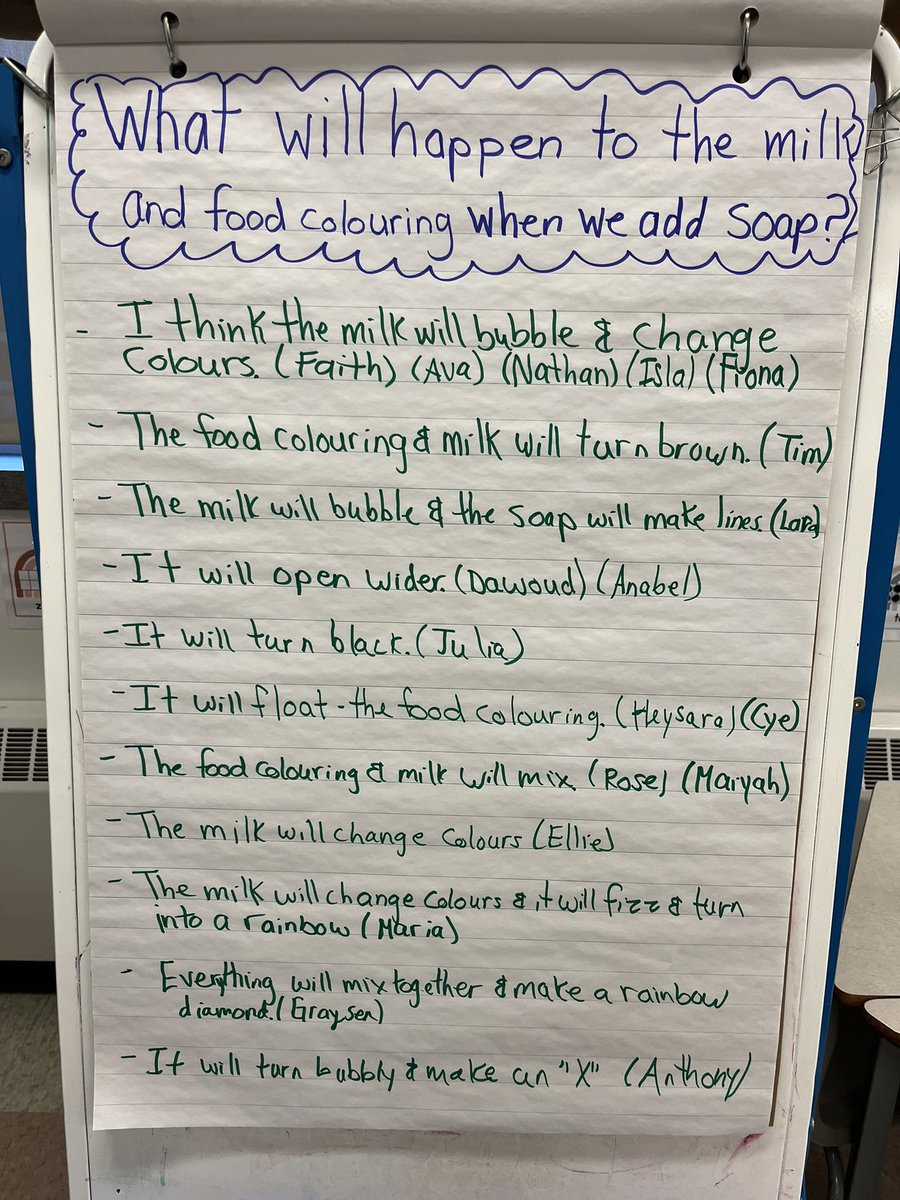 What will happen to the milk
and food colouring when we add soap?
- I think the milk will bubble & change
colours. (Faith) (Ava) (Nathan) (Isla) (Fiona)
- The food colouring & milk will turn brown. (Tim)
- The milk will bubble & the soap will make lines. (Lara)
- It will open wider. (Dawoud) (Anabel)
- It will turn black. (Julia)
- It will float - the food colouring. (Heysara) (Cye)
- The food colouring & milk will mix. (Rose) (Mariyah)
- The milk will change colours (Ellie)
- The milk will change colours & it will fizz & turn
into a rainbow (Maria)
- Everything will mix together & make a rainbow
diamond. (Graysen)
- It will turn bubbly & make an "X" (Anthony)